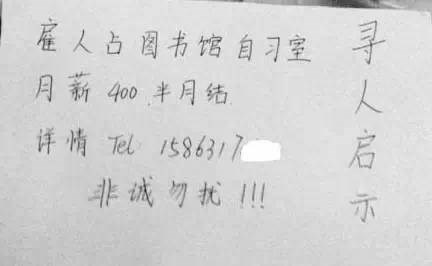 寻人启示
雇人占图书馆自习室
月薪400 半月结
详情 Tel 1586317
非诚勿扰!!!